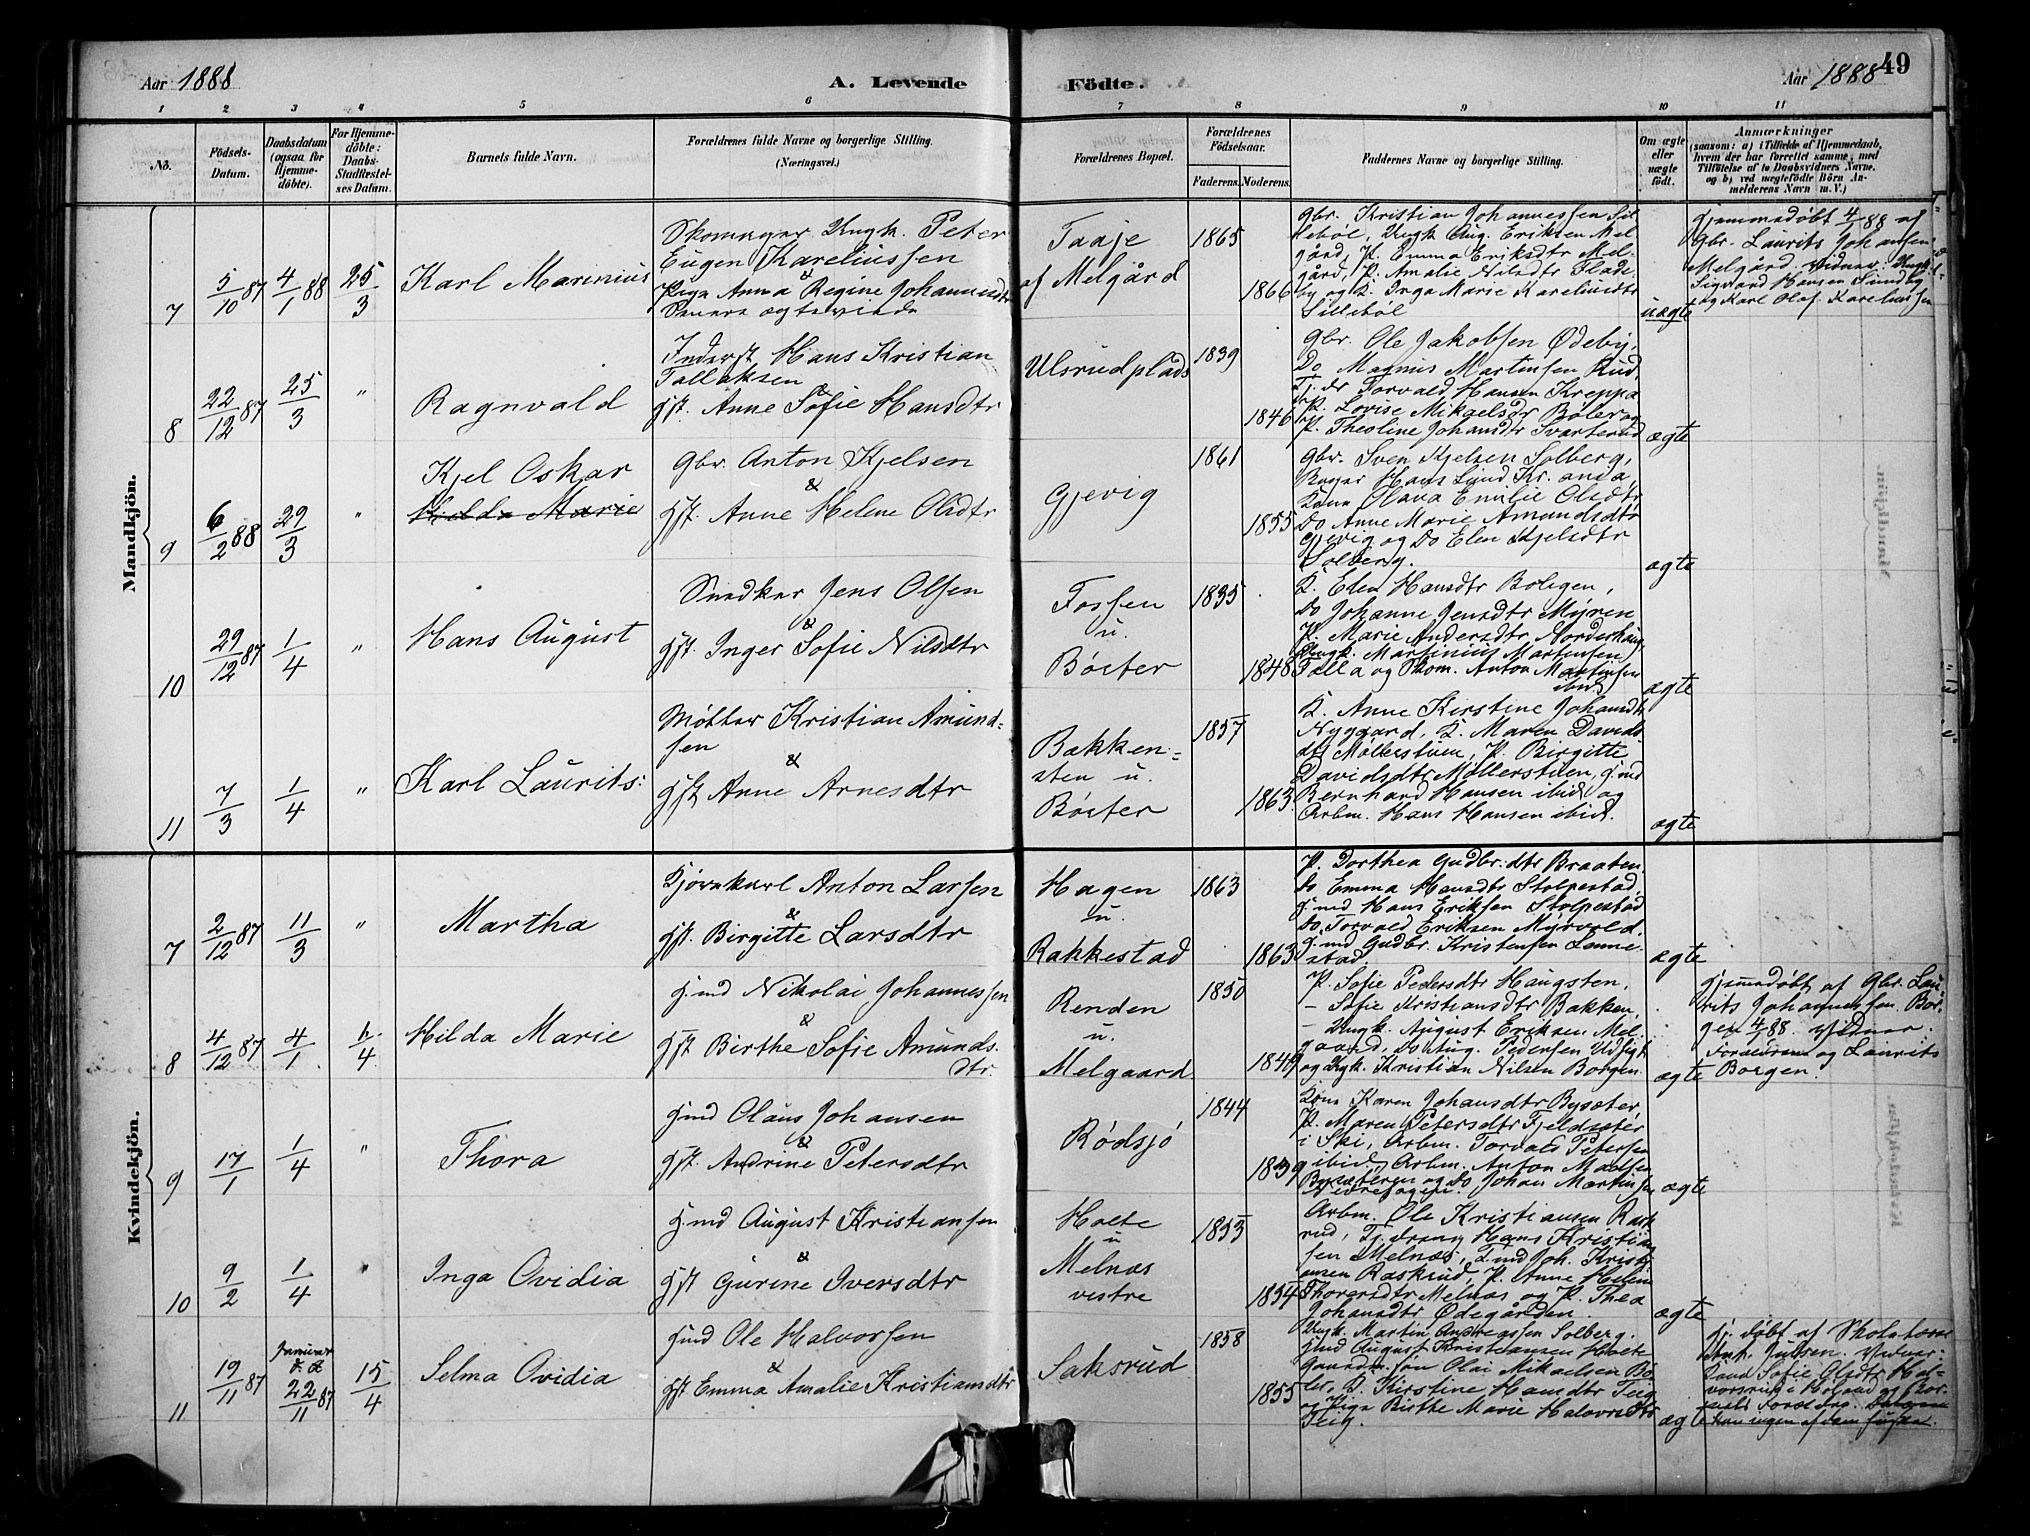 Aar 1888
A. Levende Födte.
Aar 1888
49
1 2 3 4 5 6 7 8 9 10 11
No.
Födsels-Datum.
Daabsdatum (ogsaa for Hjemme-döbte).
For Hjemme-döbte: Daabs-Stadfæstel-ses Datum.
Barnets fulde Navn.
Forældrenes fulde Navne og borgerlige Stilling. (Næringsvei.)
Forældrenes Bopæl.
Forældrenes Födselsaar.
Faderens. Moderens.
Faddernes Navne og borgerlige Stilling.
Om ægte eller uægte födt.
Anmærkninger
(saasom: a) i Tilfælde af Hjemmedaab,
hvem der har forrettet samme, med
Tilföielse af to Daabsvidners Navne.
og b) ved uægtefödte Börn An-
melderens Navn m. V.)
Mandkjön.
7
5/10 87
4/1 88
25/3
Karl Marinius
Skomager Ungk. Peter
Eugen Kareliussen
&
Pige Anna Regine Johannesdtr
Taaje
af Melgård
1865
1866
Gbr. Kristian Johannessen Sil
lebøl, Ungk Aug. Eriksen Mel
gård, P. Emma Eriksdtr Mel-
gård, P. Amalie Nilsdtr Slade
by og K. Inga Marie Kareliusdtr
Sillebøl
uægte
Hjemmedøbt 4/1 88 af
Gbr. Laurits Johansen
Melgård Vidner: Ungk
Sigvard Hansen Sundby
og Karl Olaf Kareliussen
8
22/12 87
25/3
"
Ragnvald
Inderst Hans Kristian
Tollaksen
&
Hst. Anne Sofie Hansdtr
Ulsrudplads
1839
1846
Gbr. Ole Jakobsen Ødeby,
Do Magnus Martensen Rud,
Tj. dr Torvald Hansen Kreppa
P. Lovise Mikaelsdtr Bøler og
P. Theoline Johansdtr Svarterud
ægte
9
6/2 88
29/3
"
Kjel Oskar
Hilda Marie
Gbr. Anton Kjelsen
&
Hst. Anne Helene Olsdtr
Gjevig
1861
1855
Gbr. Sven Kjelsen Solberg,
Hans Lund Kr. ania,
Kone Olava Emilie Olsdtr
Do Anne Marie Amundsdtr
Gjevig og Do Elen Kjelsdtr
Solberg.
ægte
10
29/12 87
1/4
"
Hans August
Snedker Jens Olsen
&
Hst. Inger Sofie Nilsdtr
Fossen
u.
Bøster
1835
1848
K. Elen Hansdtr Boligen,
Do Johanne Jensdtr Myren
P. Marie Andersdtr Norderhaug,
Ungk. Martinius Martensen
Folla og Skom. Anton Martinsen
ibid
ægte
11
7/3
1/4
"
Karl Laurits:
Møller Kristian Amund-
sen
&
Hst Anne Arnesdtr
Bakken-
sten u.
Bøster
1857
1863
K. Anne Kirstine Johansdtr
Nyggard, K. Maren Davids
dtr Møllerstuen, P. Birgitte
Davidsdtr Møllerstuen, Hmd
Bernhard Hansen ibid og
Arbm. Hans Hansen ibid.
ægte
Kvindekjön.
7
2/12 87
11/3
"
Martha
Kjørekarl Anton Larsen
&
Hst. Birgitte Larsdtr
Hagen
u.
Rakkestad
1863
1863
P. Dorthea Gudbr. dtr Braaten
Do Emma Hansdtr Stolpestad,
Hmd Hans Eriksen Stolpestad
Do. Torvald Eriksen Myrvold.
Hmd Gudbr. Kristensen Lunne-
stad.
ægte
8
4/12 87
4/1
6/4
Hilda Marie
Hmd Nikolai Johannessen
&
Hst Birthe Sofie Amunds.
dtr.
Renden
u.
Melgaard.
1850
1849
P. Sofie Pedersdtr Haugsten,
- Sofie Kristiansdtr Bakken,
- Ungk. August Eriksen Mel-
gaard, Do Aug. Pedersen Udsigt
og Ungk. Kristian Nilsen Borgen.
ægte
Hjemmedøbt af Gbr. Lau
rits Johannessen Bor-
gen 4/1 88. Vidner:
Forældrene og Laurits
Borgen.
9
17/1
1/4
"
Thora
Hmd Olaus Johansen
&
Hst. Andrine Petersdtr
Rødsjø
1844
1839
Kone Karen Johansdtr Bysæter,
P. Maren Petersdtr Fjeldsæter
i Ski, Arbm. Torvald Petersen
ibid, Arbm. Anton Madsen
Bysæteren og Do Johan Martinsen
ægte
10
9/2
1/4
"
Inga Ovidia
Hmd August Kristiansen
&
Hst Gurine Iversdtr
Holte
u
Melnæs
vestre
1853
1854
Arbm. Ole Kristiansen Rask
rud, Tj. dreng Hans Kristian
sen Melnæs, Hmd Joh. Kristi
ansen Raskrud, P. Anne Helene
Thoresdtr Melnæs og P. Thea
Johansdtr Ødegården
ægte
11
19/11 87
Januar
22/11 87
15/4
Selma Ovidia
Hmd Ole Halvorsen
&
Hst Emma Amalie Kristiansdtr
Saksrud
1858
1855
Ungk. Martin Andreassen Solberg.
Hmd August Kristiansen Holte
Gaardm. søn Olai Mikaelsen Bø-
ler, K. Kirstine Hansdtr Teig
og Pige Birthe Marie Halvorsdtr
Teig.
ægte
Hj. døbt af Skolelærer
Julsen. Vidner:
Kone Sofie Olsdtr Hal-
vorsrud i